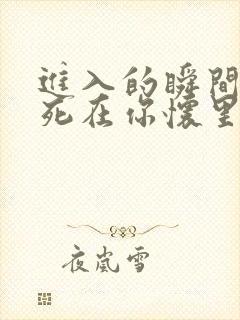 進入的瞬間
死在你懷里
夜嵐雪